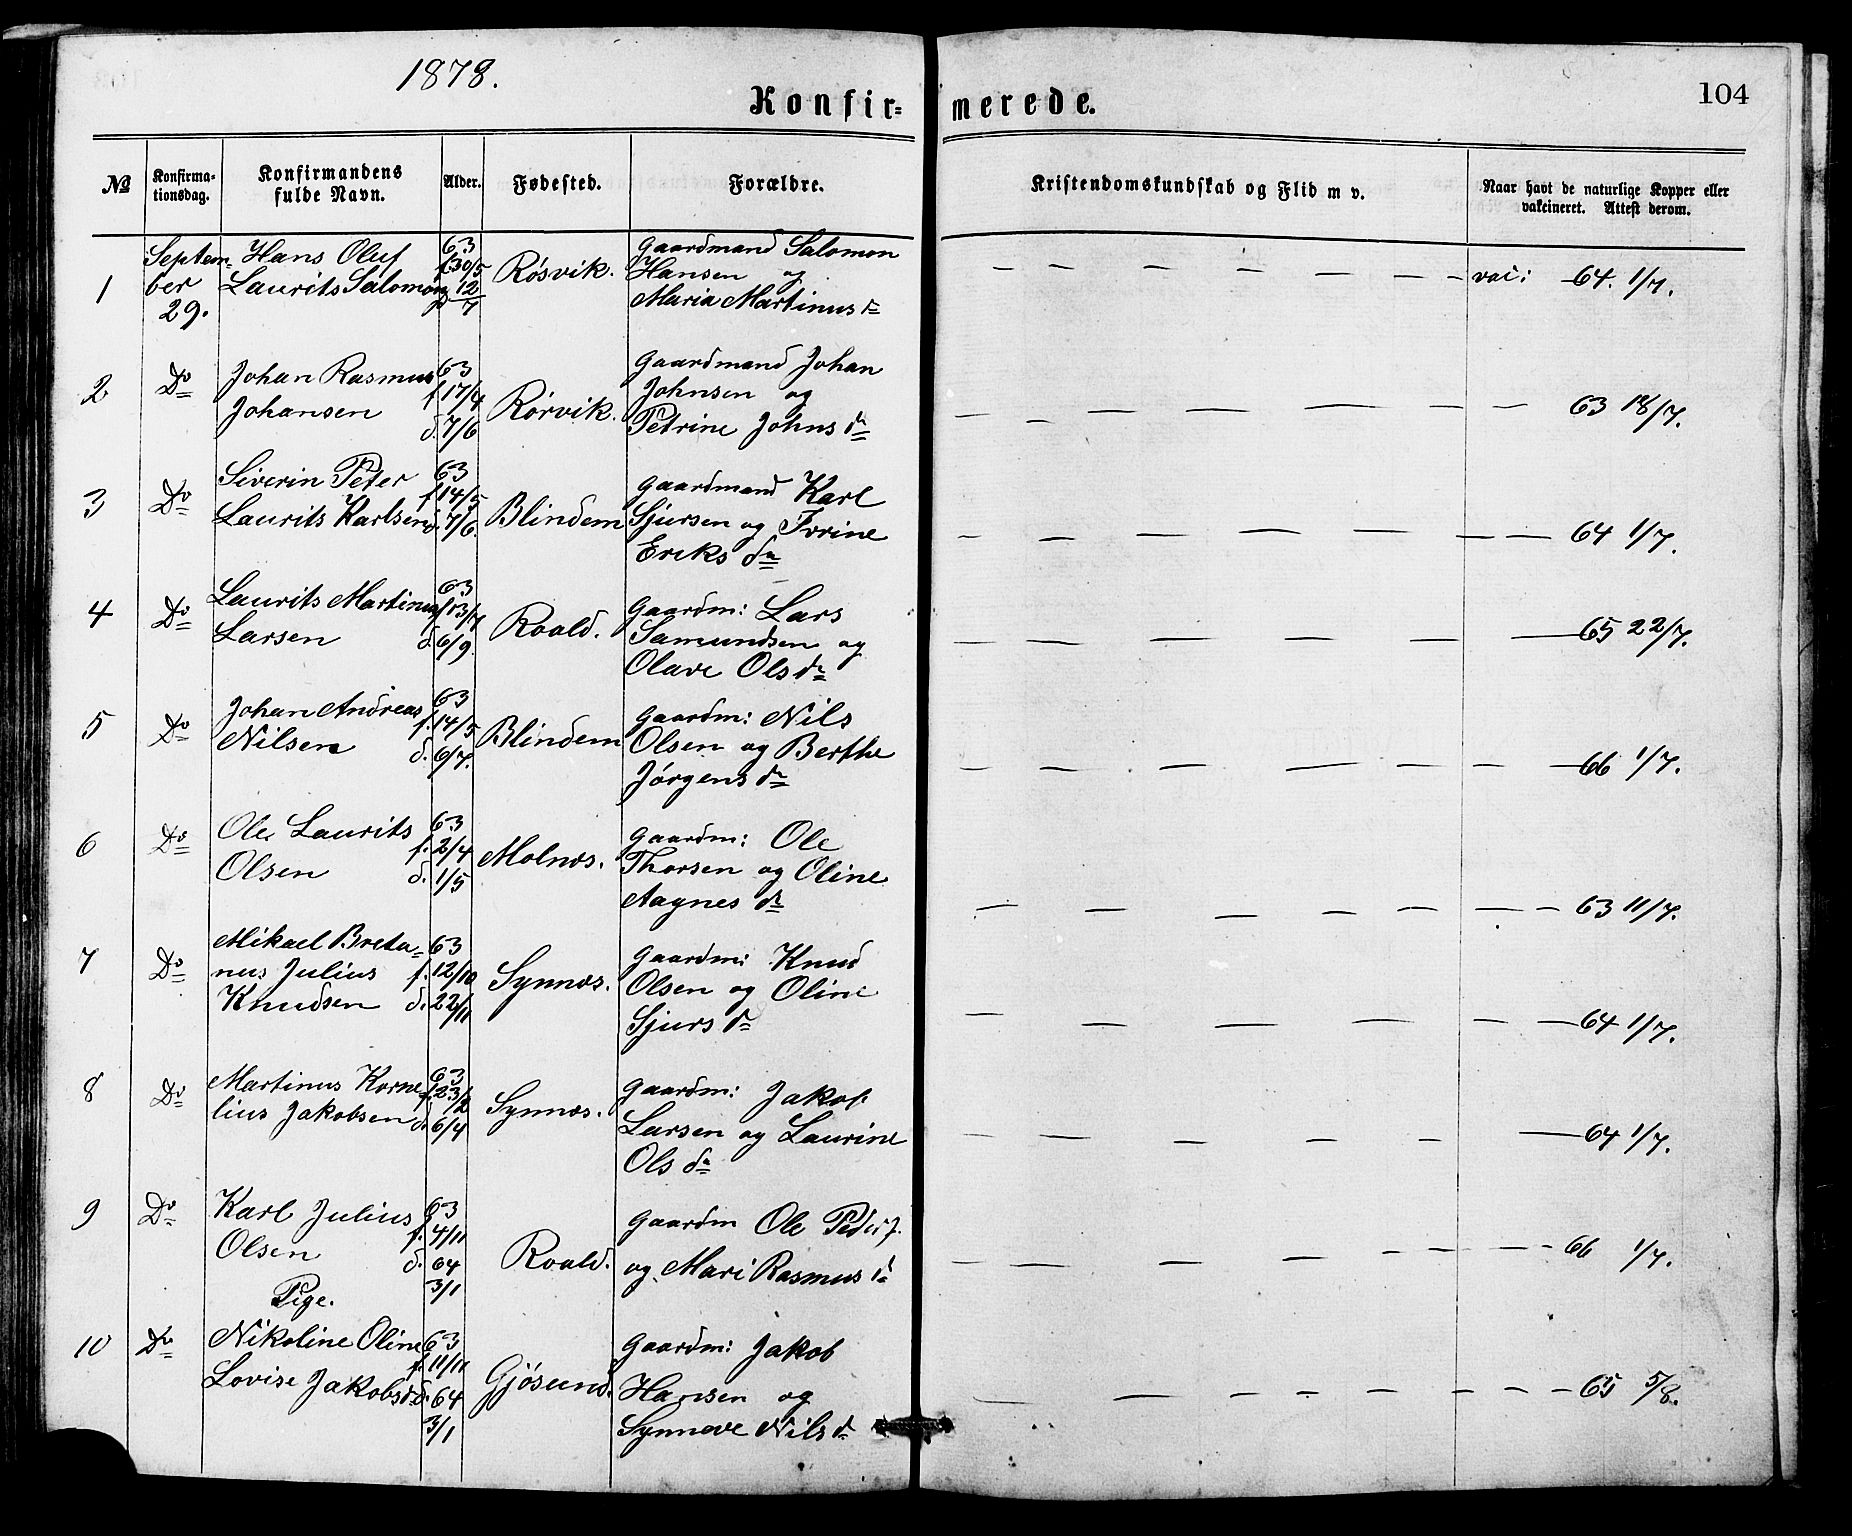 1878.
Konfir=merede.
104
No
Konfirma-
tionsdag.
Konfirmandens
fulde Navn.
Alder.
Fødested.
Forældre.
Kristendomskundskab og Flid m v.
Naar havt de naturlige Kopper eller
vakcineret. Attest derom.
1
Septem-
ber
29.
Hans Oluf
Laurits Salomons
63
f30/5
d 12/7
Rösvik.
Gaardmand Salomon
Hansen og
Maria Martinus d
— — — — — — vac: — 64. 1/7.
2
Do
Johan Rasmus
Johansen
63
f 17/4
d. 7/6
Rörvik.
Gaardmand Johan
Johnsen og
Petrine Johns da
— — — — — — — 63 18/7.
3
Do
Siverin Peter
Laurits Karlsen
63
f 14/5
d. 7/6.
Blindem
Gaardmand Karl
Sjursen og Ivrine
Eriks da
— — — — — — — 64 1/7.
4
Do
Laurits Martinus
Larsen
63
f 13/7
d. 6/9.
Roald.
Gaardm: Lars
Samundsen og
Olave Ols da
— — — — — — 65 22/7.
5
Do
Johan Andreas
Nilsen
63
f. 14/5
d. 6/7.
Blindem
Gaardm: Nils
Olsen og Berthe
Jörgens da
— — — — — — — 66 1/7.
6
Do
Ole Laurits
Olsen
63
f. 2/4
d. 1/5
Molnæs.
Gaardm: Ole
Thorsen og Oline
Aagnes da
— — — — — — — 63 11/7.
7
Do
Mikael Breta=
nus Julius
Knudsen
63
f. 12/10
d. 22/11
Synnæs.
Gaardm: Knud
Olsen og Oline
Sjurs d
— — — — — — 64 1/7.
8
Do
Martinus Korne
lius Jakobsen
63
f. 23/2
d. 6/4
Synnæs.
Gaardm: Jakob
Larsen og Laurine
Ols da
— — — — — — 64 1/7.
9
Do
Karl Julius
Olsen
63
f. 4/11
d. 64
3/1
Roald.
Gaardm Ole Peders.
og Mari Rasmus d
— — — — — — — 66 1/7.
Pige.
10
Do
Nikoline Oline
Lovise Jakobsd
63
f. 11/11
d. 64
3/1
Gjösund.
Gaardm: Jakob
Hansen og
Synneve Nils d
— — — — — — — 65 5/8.